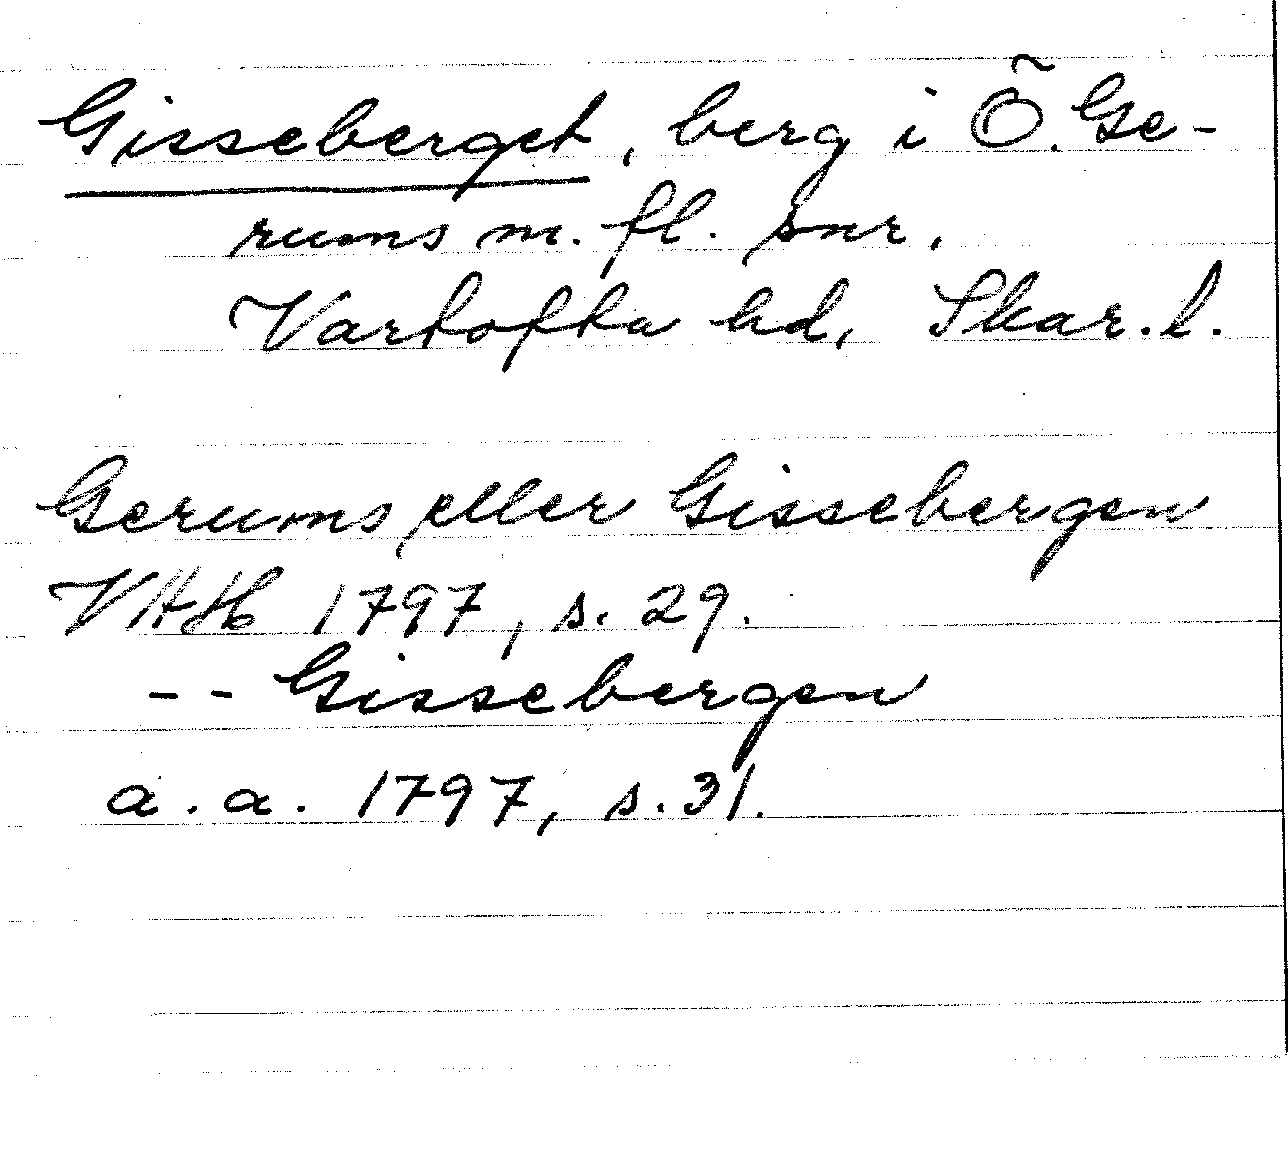 Gisseberget, berg i Ö. Ge-
rums m. fl. snr,
Vartofta hd, Skar. l.
Gerums eller Gissebergen
VAH 1797, s. 29.
-- Gissebergen
a. a. 1797, s. 31.